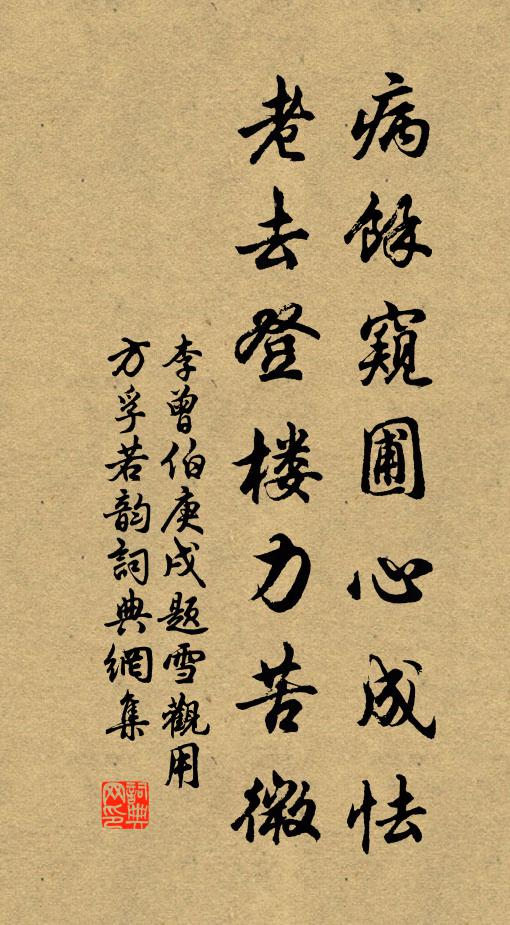 病餘窺圃心成怯
老去登楼力苦微
李曾伯庚戌题雪觀用
方孚若韵詞典網集
詞典网印